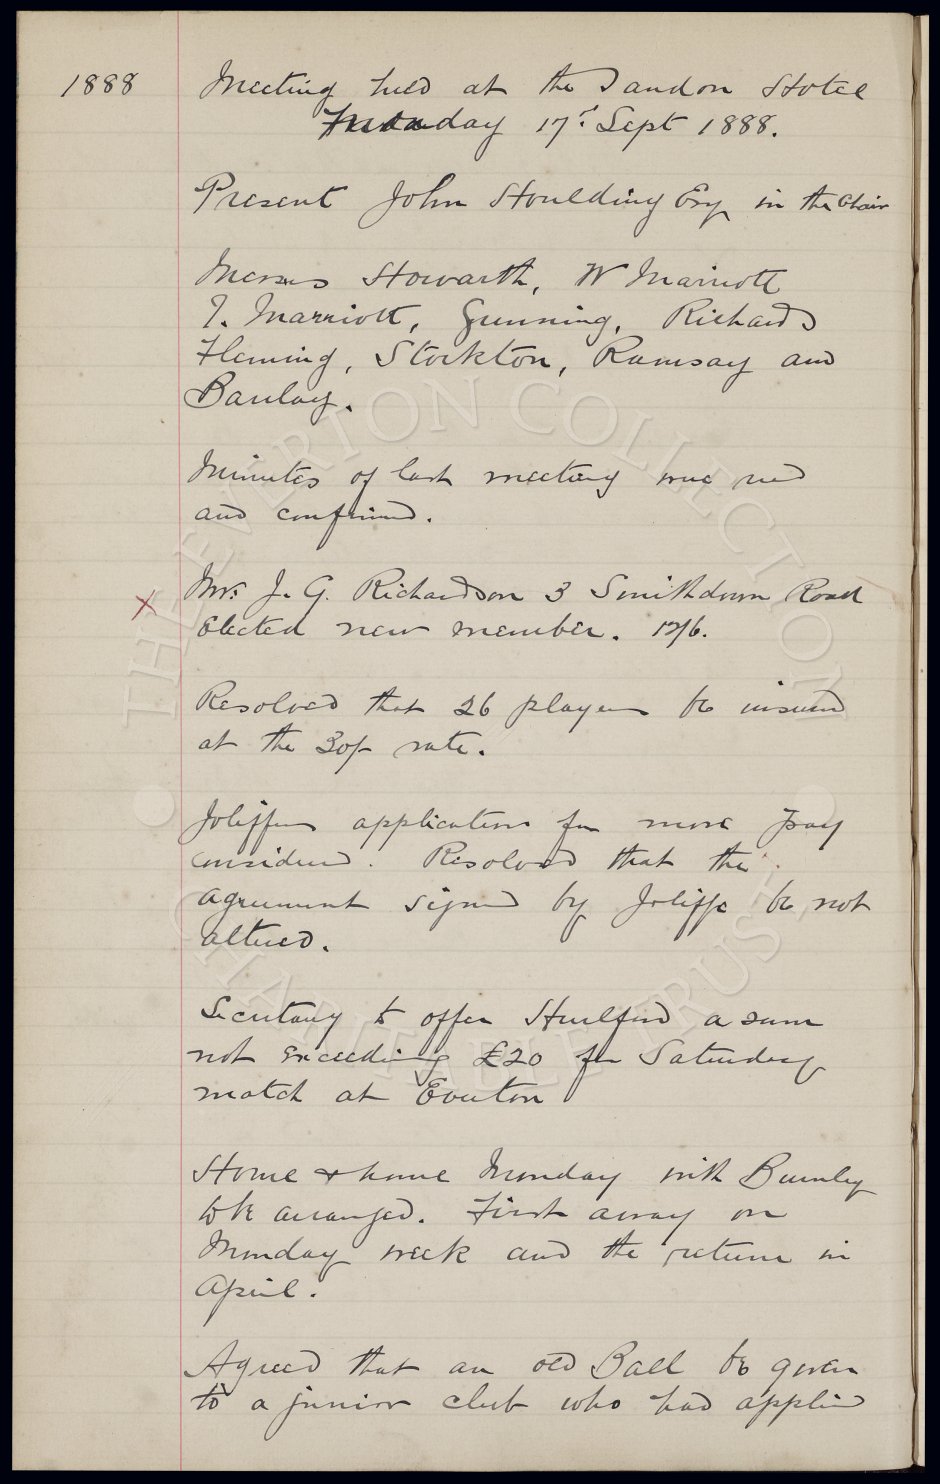 1888
Meeting held at the Sandon Hotel
Monday 17th Sept 1888.
Present John Houlding Esq in the Chair
Messrs Howarth, W Marriott
T. Marriott, Gunning, Richards
Fleming, Stockton, Ramsay and
Barclay.
Minutes of last meeting were read
and confirmed.
x Mr. J. G. Richardson 3 Smithdown Road
elected new member. 12/6.
Resolved that 26 players be insured
at the 30/- rate.
Joliffes application for more pay
considered. Resolved that the
agreement signed by Joliffe be not
altered.
Secretary to offer Hurlford a sum
not exceeding £20 for Saturday
match at Everton
Home & home Monday with Burnley
to be arranged. First away on
Monday week and the return in
April.
Agreed that an old Ball be given
to a junior club who had applied
THE EVERTON COLLECTION
CHARITABLE TRUST